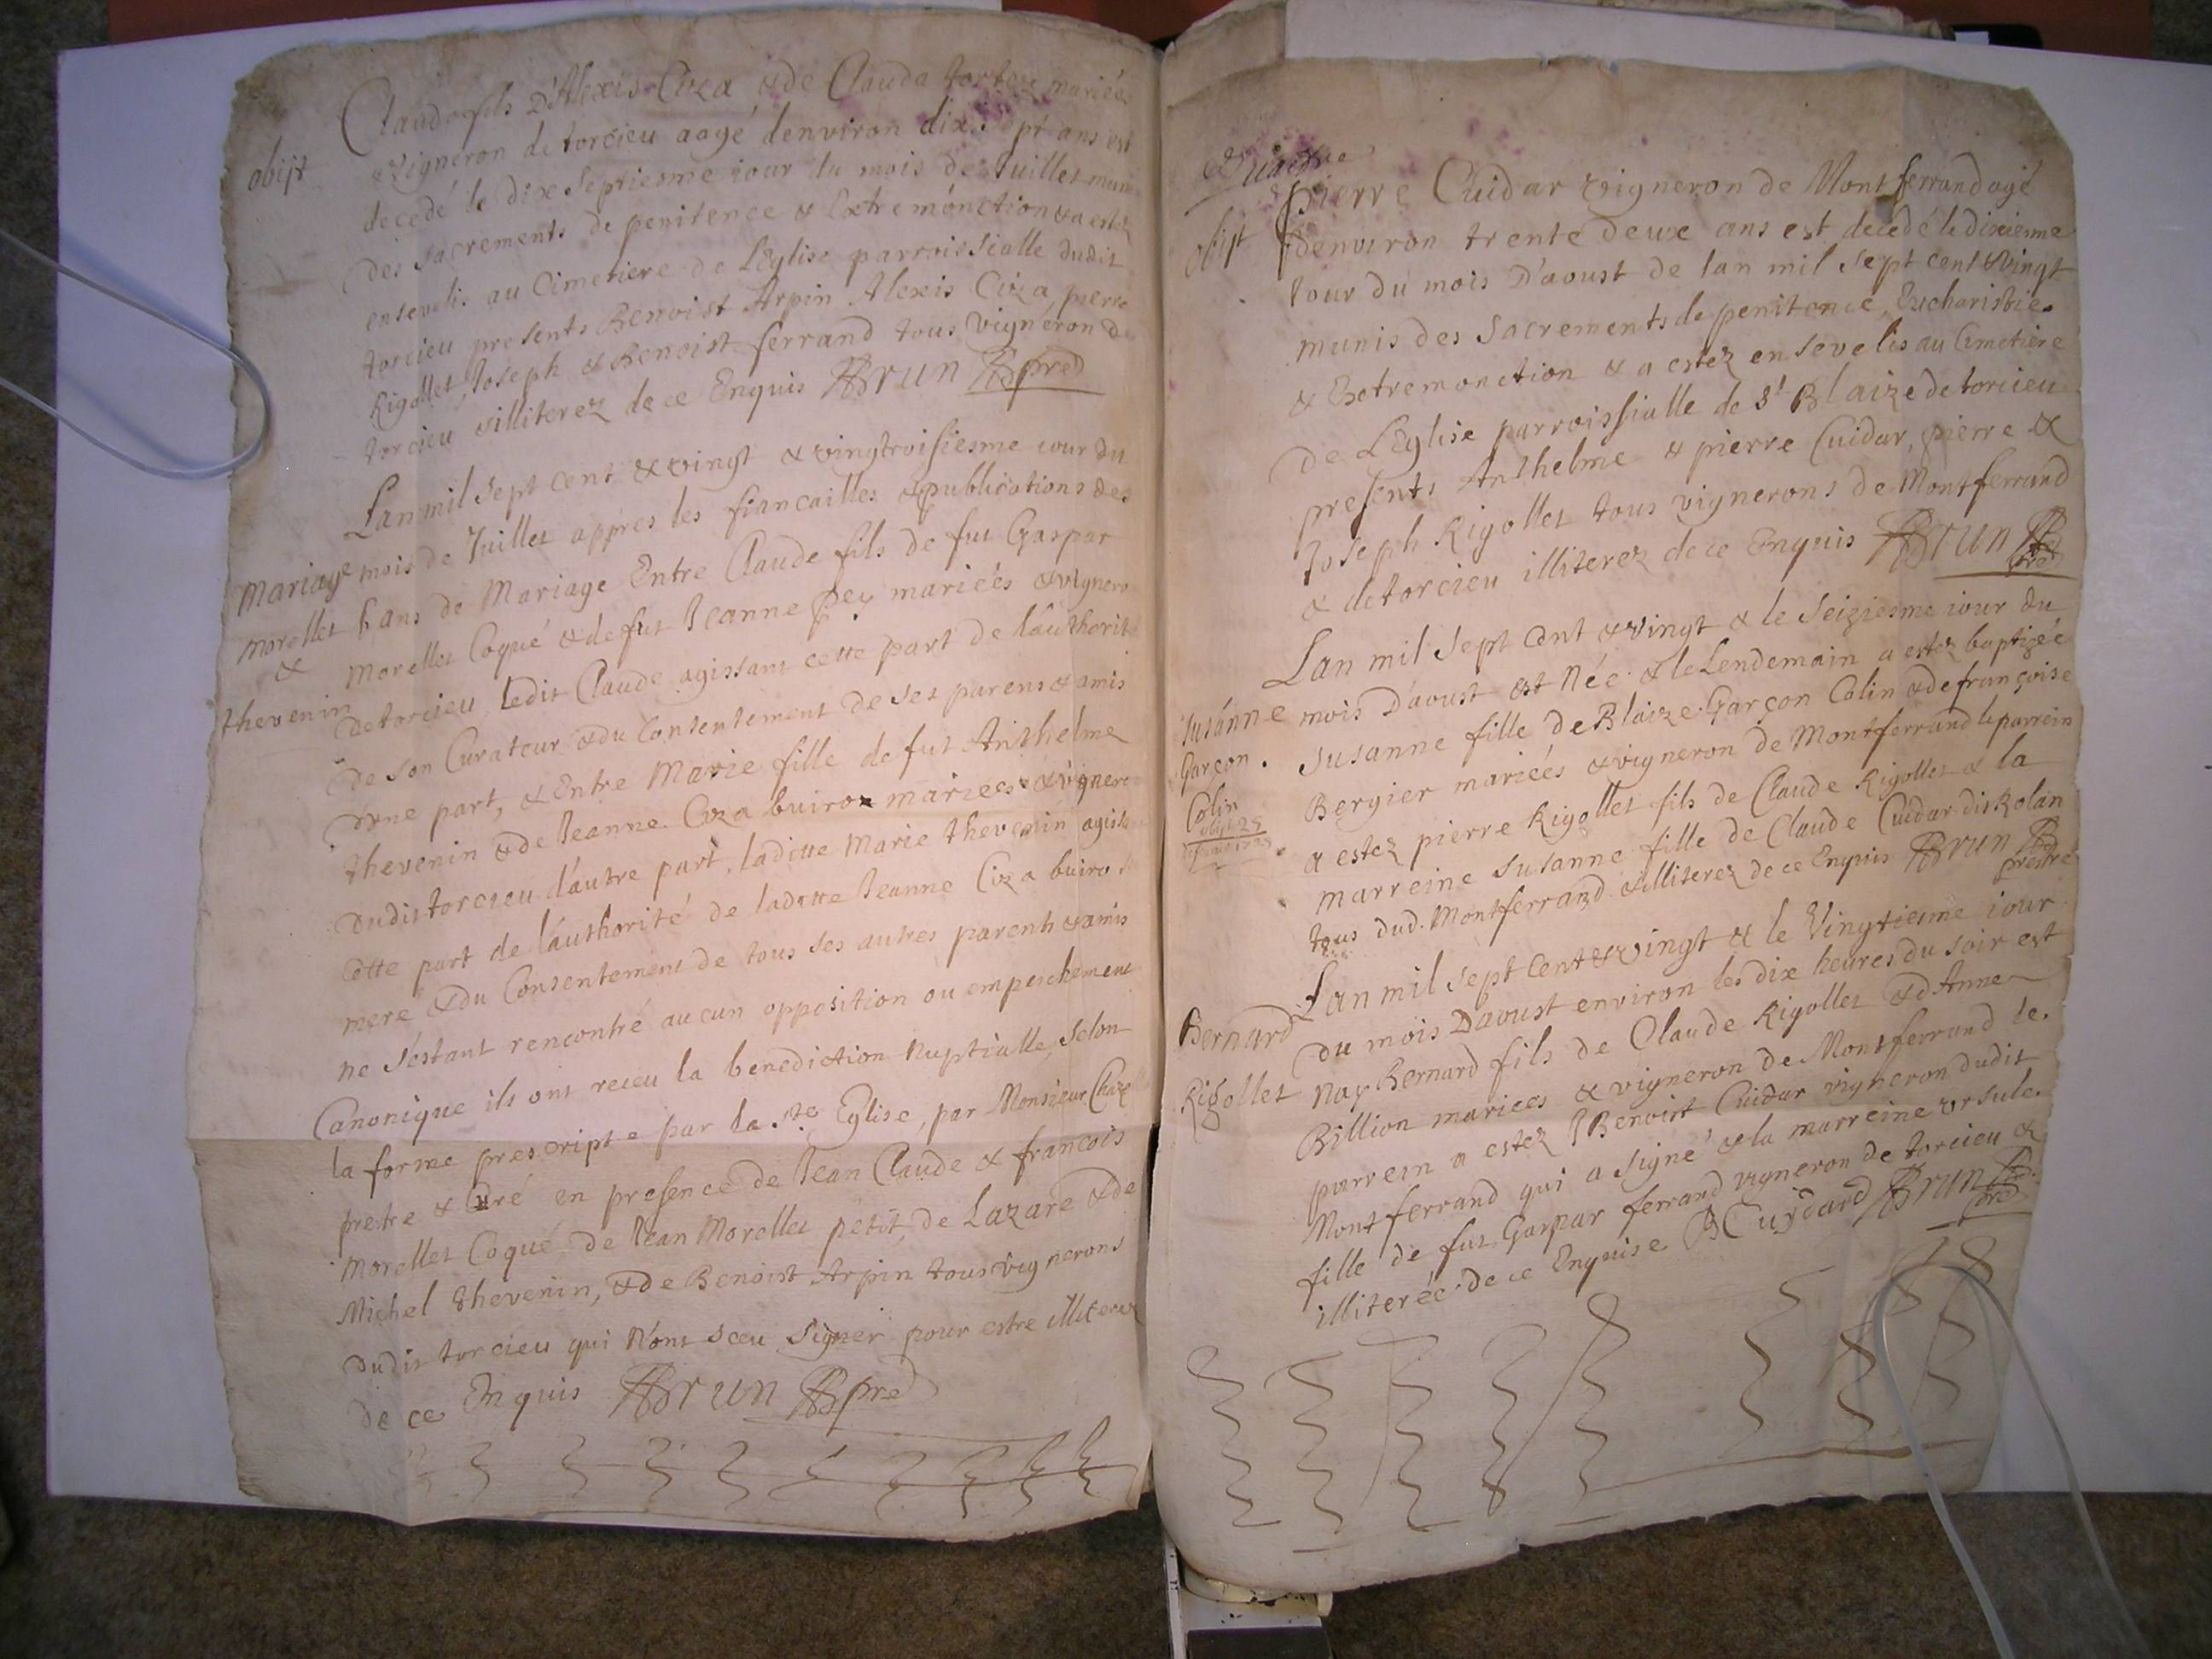 Claude fils D'Alexis Ciza & de Clauda tortez mariés
obijt
& vigneron de torcieu aagé denviron dix sept ans est
decedé le dix Septiesme iour du mois de Juillet muni
des sacrements de penitence & Extremonction & a estez
ensevelis au Cimetiere de LEglise parroissialle dudit
torcieu presents Benoist Arpin Alexis Ciza, pierre
Rigollet, Joseph & Benoist ferrand tous vigneron de
torcieu & illiterez de ce Enquis Brun pre
Lan mil Sept cent & vingt & vingtroisiesme iour du
Mariage mois de Juillet appres les fiancailles & publications des
morellet bans de Mariage Entre Claude fils de fut Gaspar
& Morellet Coqué & de fut Jeanne pey mariées & vignero
thevenin de torcieu ledit Claude agissant cette part de lauthorité
de son Curateur & du Contentement de ses parens & amis
d'une part, & Entre Marie fille de fut Anthelme
thevenin & de Jeanne Ciza buiron mariées & vignero
dudit torcieu d'autre part, laditte Marie thevenin agissa
cette part de l'authorité de laditte Jeanne Ciza buiro
mere & du Consentement de tous ses autres parents & amis
ne s'estant rencontré aucun opposition ou empeschement
Canonique ils ont receu la benediction Nuptialle, selon
la forme prescripte par la Ste Eglise, par Monsieur
pretre & Curé en presence de Jean Claude & francois
Morellet Coqué, de Jean Morellet petit, de Lazare & de
Michel thevenin, & de Benoist Arpin tous vignerons
dudit torcieu qui N'ont sceu signer pour estre illiterez
de ce Enquis Brun pre
pierre Cuidar vigneron de Montferrand agé
obijt denviron trente deux ans est decedé le dixienme
iour du mois D'aoust de lan mil sept cent & vingt
munis des Sacrements de penitence, Eucharistie
& Extremonction & a estez ensevelis au Cimetiere
de LEglise parroissialle de St Blaize de torcieu
presents Anthelme & pierre Cuidar, pierre &
Joseph Rigollet tous vignerons de Montferrand
& de torcieu illiterez de ce Enquis Brun pre
Lan mil Sept cent & vingt & le Seiziesme iour du
Susanne mois D'aoust est Née & le Lendemain a estez baptizée
Garçon Susanne fille de Blaize Garçon Colin & de françoise
Colin Bergier mariées & vigneron de Montferrand le parrein
a estez pierre Rigollet fils de Claude Rigollet & la
marreine Susanne fille de Claude Cuidar dit Rolan
tous dud. Montferrand & illiterez de ce Enquis Brun prestre
Lan mil sept Cent & vingt & le Vingtiesme iour
Bernard du mois D'aoust environ les dix heures du soir est
Rigollet Nay Bernard fils de Claude Rigollet & d'Anne
Billion mariées & vigneron de Montferrand le
parrein a estez Benoist Cuidar vigneron dudit
Montferrand qui a signé & la marreine ursule
fille de fut Gaspar ferrand vigneron de torcieu &
illiterée de ce Enquise B Cuydard Brun pre